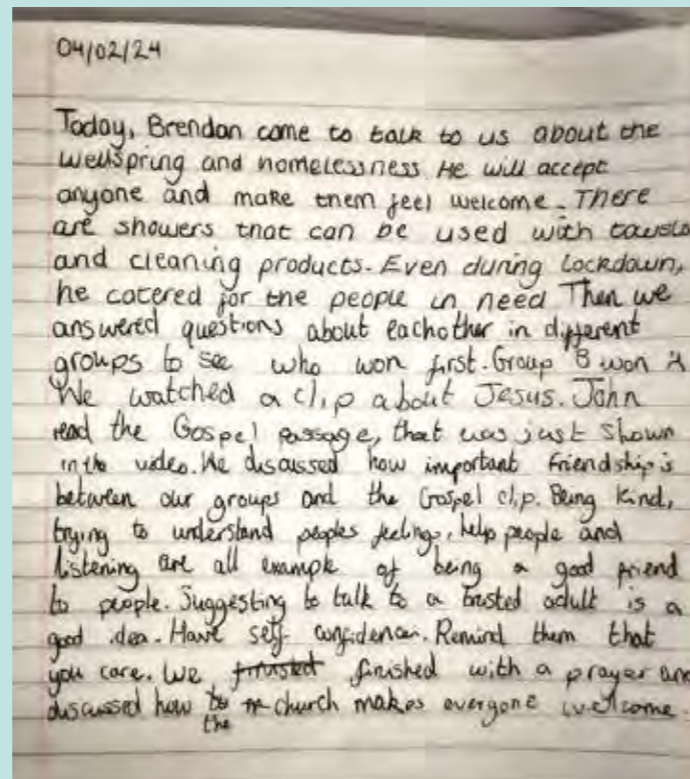 04/02/24
Today, Brendan came to talk to us about the
Wellspring and homelessness He will accept
anyone and make them feel welcome. There
are showers that can be used with towels
and cleaning products. Even during lockdown,
he catered for the people in need Then we
answered questions about eachother in different
groups to see who won first. Group B won it
We watched a clip about Jesus. John
read the Gospel passage, that was just shown
in the video. We discussed how important friendship is
between our groups and the Gospel clip. Being kind,
trying to understand peoples feelings, help people and
listening are all example of being a good friend
to people. Suggesting to talk to a trusted adult is a
good idea. Have self-confidence. Remind them that
you care. We finished with a prayer and
discussed how the church makes everyone welcome.